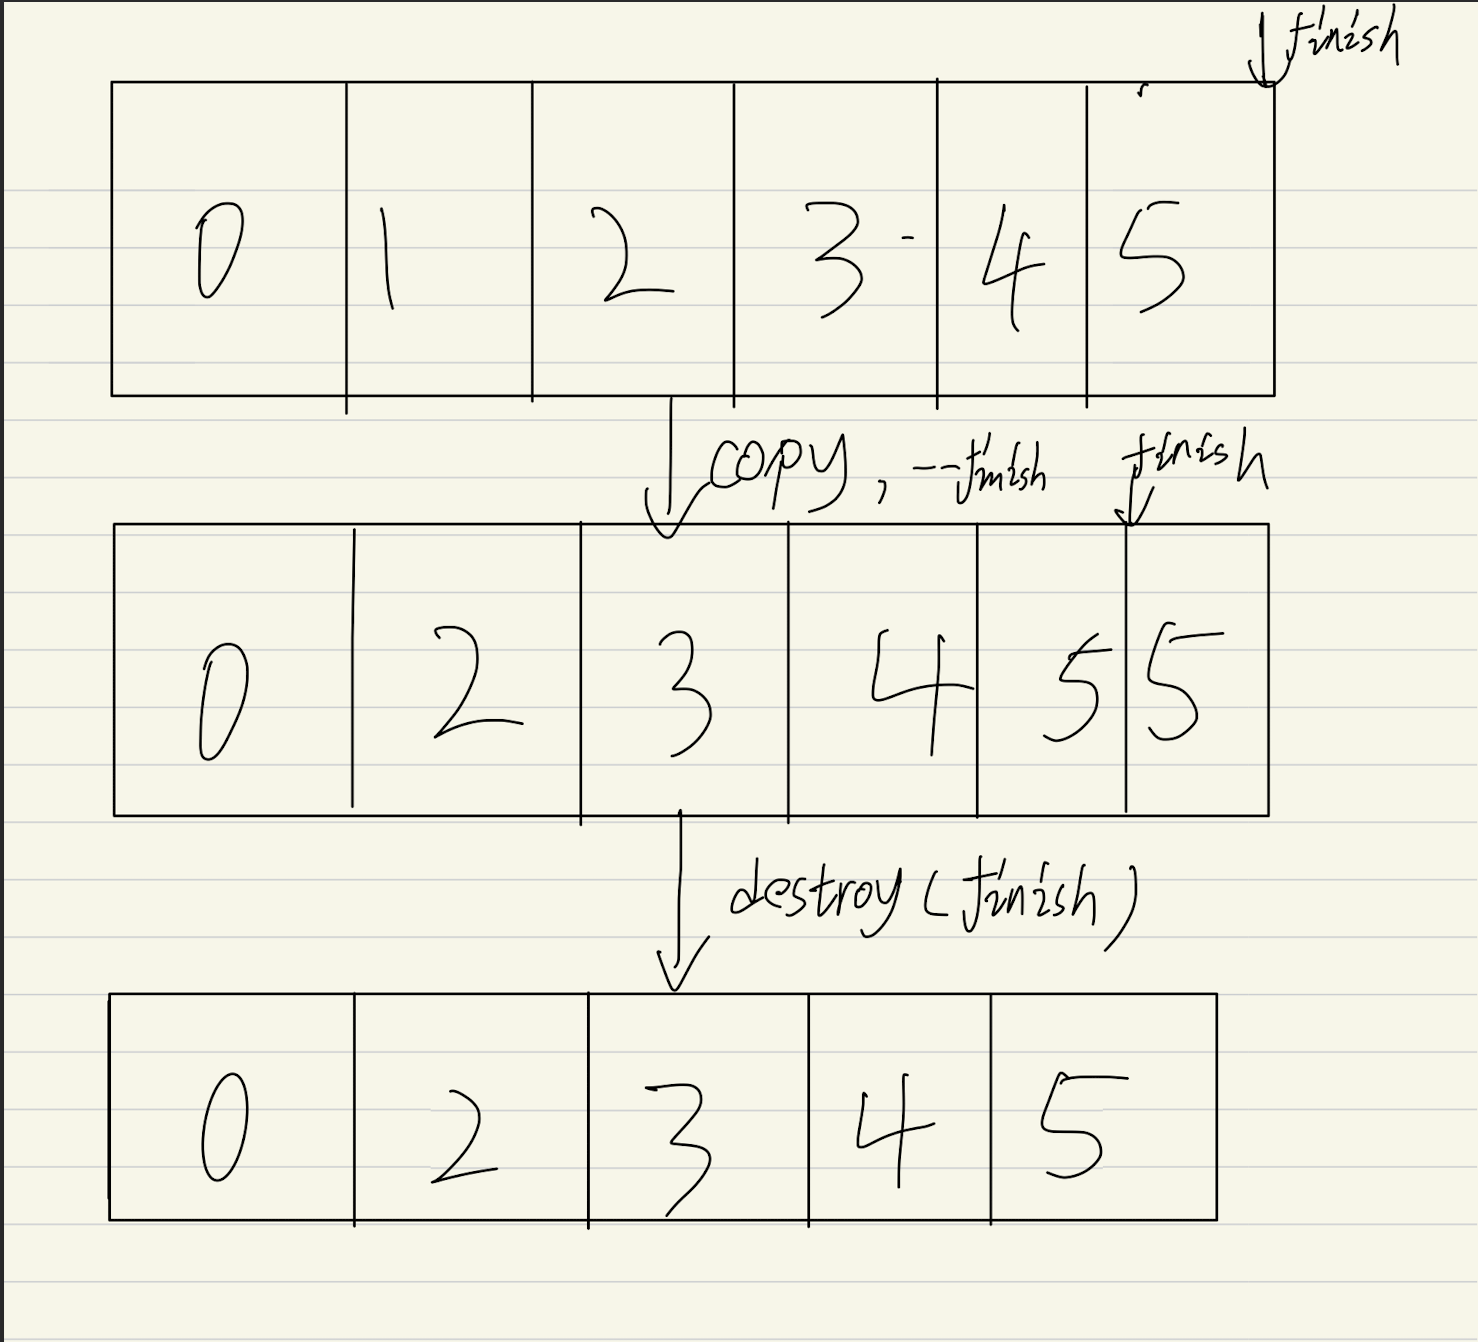 finish
0 1 2 3 4 5
copy, --finish finish
0 2 3 4 5 5
destroy (finish)
0 2 3 4 5